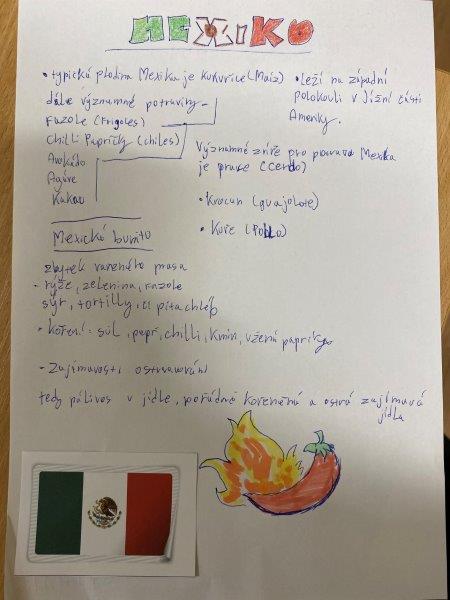 MEXIKO
• typická plodina Mexika je Kukuřice (Maíz)
dále významné potraviny
Fazole (Frigoles)
Chilli Papričky (chiles)
Avokádo
Agáve
Kakao
• leží na západní
polokouli v Jižní části
Ameriky.
Významné zvíře pro
Mexika
je prase (cerdo)
• Krocan (guajolote)
• Kuře (Pollo)
Mexické burito
zbytek vařeného masa
- rýže, zelenina, fazole
sýr, tortilly, či pita chléb
• koření: sůl, pepř, chilli, kmín, uzená paprička
- Zajímavosti ostravování
tedy pálivos v jídle, pořádně kořeněná a ostrá zajímavá
jídla